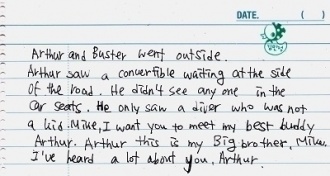 DATE. ( )
Arthur and Buster went outside.
Arthur saw a convertible waiting at the side
of the road. He didn't see any one in the
car seats. He only saw a diver who was not
a kid. Mike, I want you to meet my best buddy
Arthur. Arthur this is my Big brother, Mike.
I've heard a lot about you, Arthur.